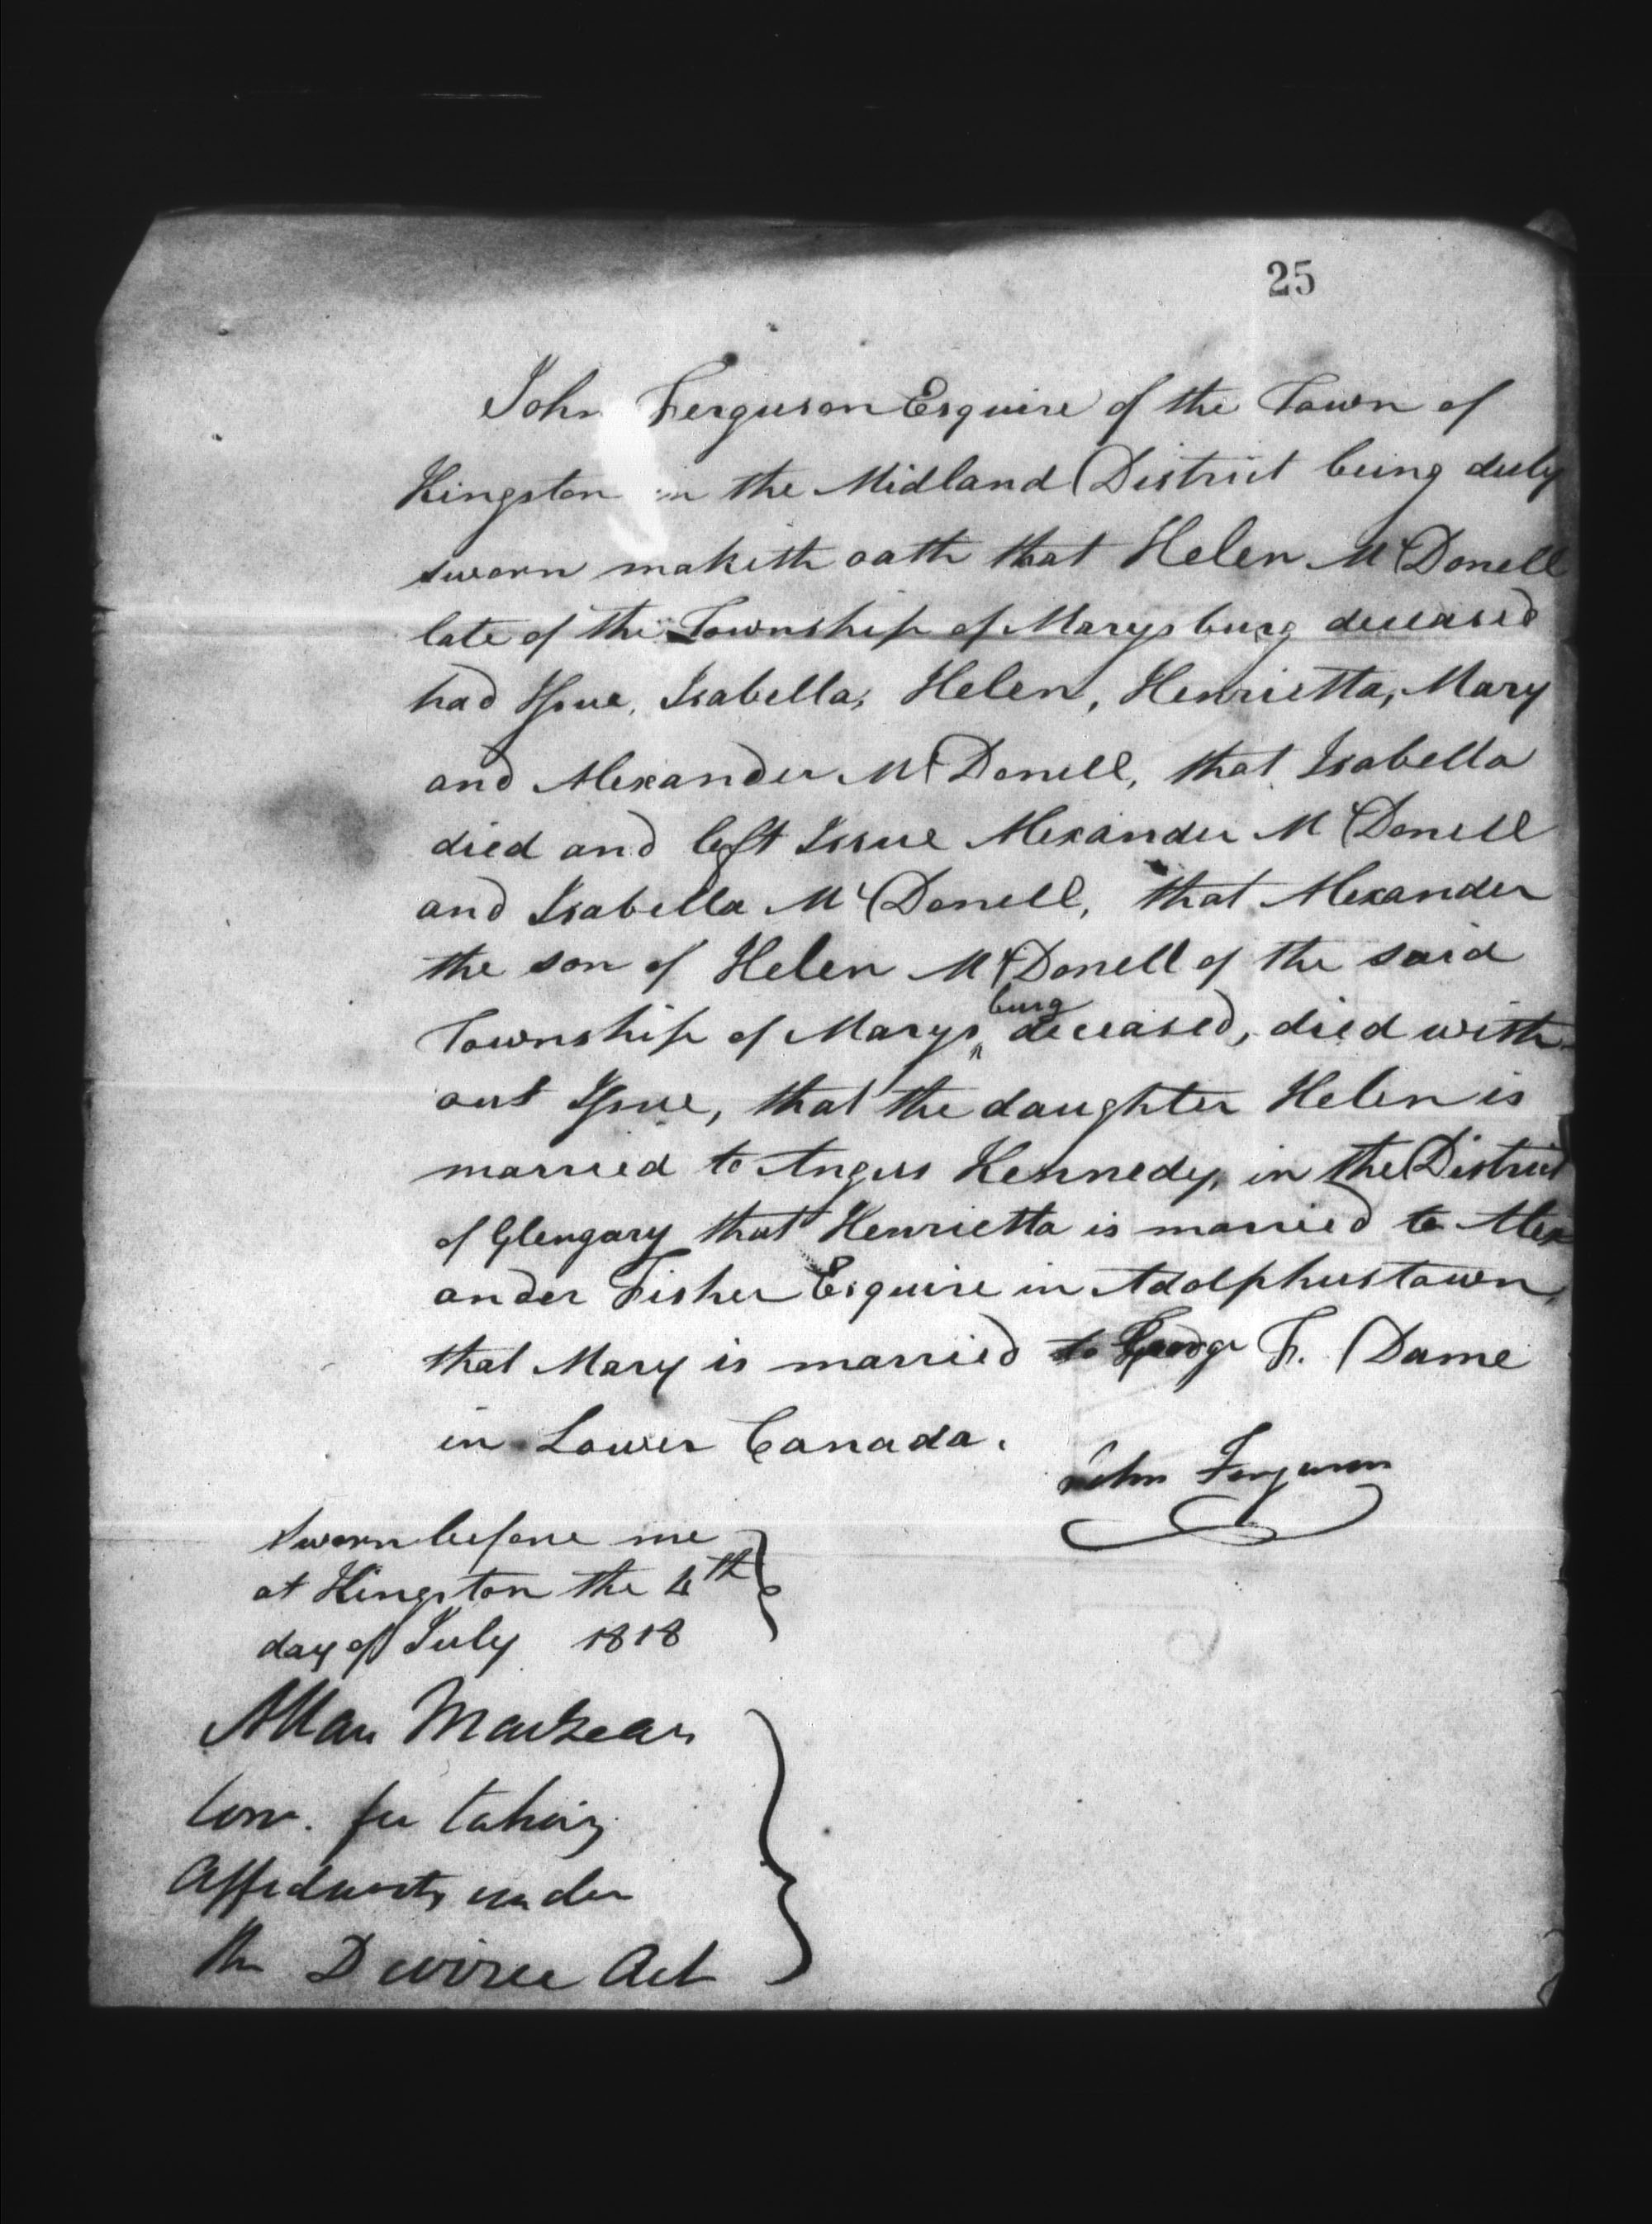 25
John Ferguson Esquire of the Town of
Kingston in the Midland District being duly
sworn maketh oath that Helen McDonell
late of the Township of Marysburg deceased
had Issue, Isabella, Helen, Henrietta, Mary
and Alexander McDonell, that Isabella
died and left Issue Alexander McDonell
and Isabella McDonell, that Alexander
the son of Helen McDonell of the said
Township of Marysburg deceased, died with-
out Issue, that the daughter Helen is
married to Angus Kennedy, in the District
of Glengary that Henrietta is married to Alex
ander Fisher Esquire in Adolphustown,
that Mary is married to George F. Dame
in Lower Canada.
John Ferguson
Sworn before me
at Kingston the 4th
day of July 1818
Allan MacLean
Com. for taking
Affidavits under
the Devisee Act